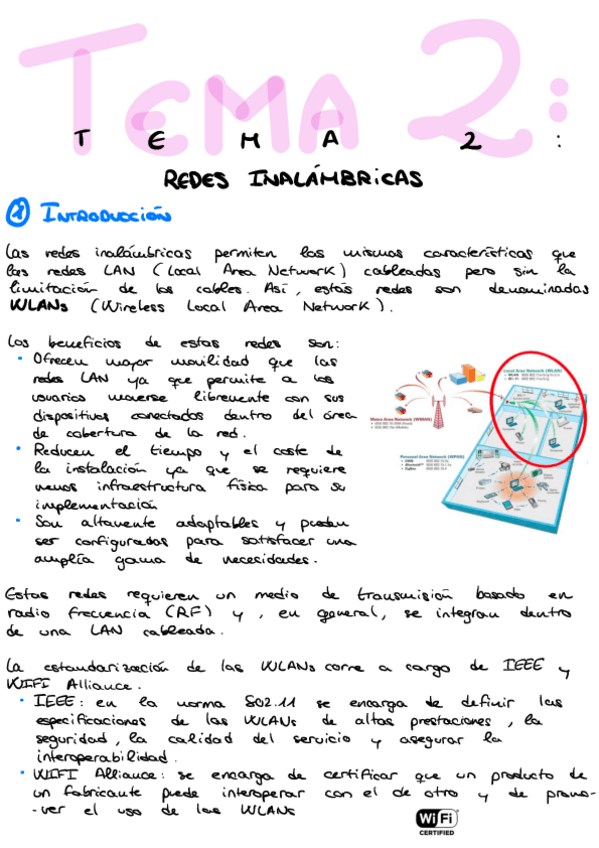 TEMA 2:
T E M A 2 :
REDES INALÁMBRICAS
1 INTRODUCCIÓN
Las redes inalámbricas permiten las mismas características que
las redes LAN (Local Area Network) cableadas pero sin la
limitación de los cables. Así, estás redes son denominadas
WLANs (Wireless Local Area Network).
Los beneficios de estas redes son:
• Ofrecen mayor movilidad que las
redes LAN ya que permite a los
usuarios moverse libremente con sus
dispositivos conectados dentro del área
de cobertura de la red.
• Reducen el tiempo y el coste de
la instalación ya que se requiere
menos infraestructura física para su
implementación
• Son altamente adaptables y pueden
ser configurados para satisfacer una
amplia gama de necesidades.
Local Area Network (WLAN)
Wide Area Network (WMAN)
Personal Area Network (WPAN)
Estas redes requieren un medio de transmisión basado en
radio frecuencia (RF) y, en general, se integran dentro
de una LAN cableada.
La estandarización de las WLANs corre a cargo de IEEE y
WIFI Alliance.
• IEEE: en la norma 802.11 se encarga de definir las
especificaciones de las WLANs de altas prestaciones, la
seguridad, la calidad del servicio y asegurar la
interoperabilidad.
• WIFI Alliance: se encarga de certificar que un producto de
un fabricante puede interoperar con el de otro y de promo-
-ver el uso de las WLANs
Wi Fi
CERTIFIED